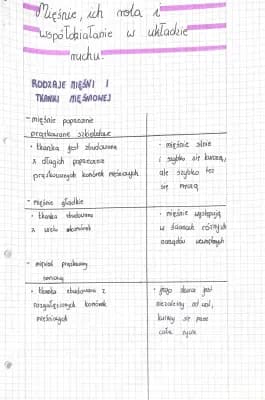 Mięśnie, ich rola i
współdziałanie w układzie
ruchu.
RODZAJE MIĘŚNI I
TKANKI MIĘŚNIOWEJ
- mięśnie poprzecznie
prążkowane szkieletowe
• tkanka jest zbudowana
z długich poprzecznie
prążkowanych komórek mięśniowych.
• mięśnie silnie
i szybko się kurczą,
ale szybko też
się męczą
- mięśnie gładkie
• tkanka zbudowana
z wielu
• mięśnie występują
w ścianach różnych
narządów wewnętrznych
- mięsień prążkowany
• tkanka zbudowana z
rozgałęzionych komórek
mięśniowych
• jego skurcz jest
niezależny od woli,
kurczy się przez
całe życie